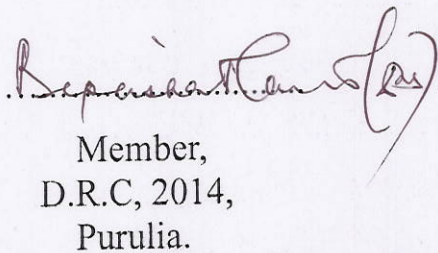 Member,
D.R.C, 2014,
Purulia.